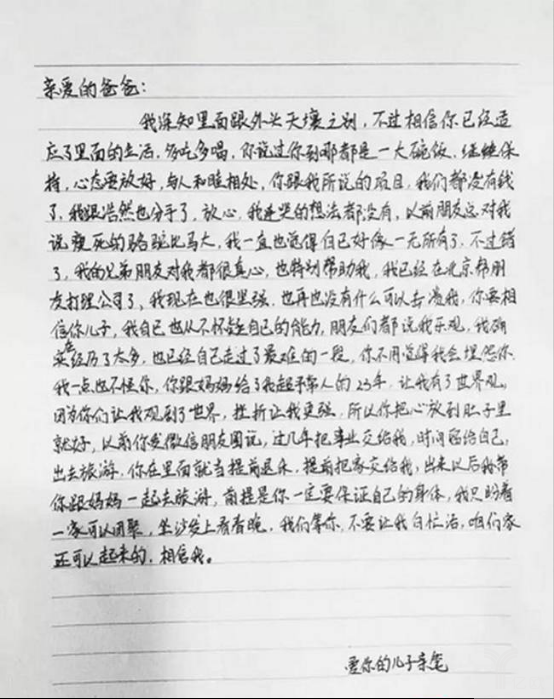 亲爱的爸爸：
我深知里面跟外头天壤之别，不过相信你已经适
应了里面的生活，多吃多喝，你说过你到那都是一大碗饭，继续保
持，心态要放好，与人和睦相处，你跟我所说的项目，我们都没有钱
了，我跟浩然也分手了，放心，我连哭的想法都没有，以前朋友总对我
说瘦死的骆驼比马大，我一直也觉得自己好像一无所有了，不过错
了，我的兄弟朋友对我都很真心，也特别帮助我，我已经在北京帮朋
友打理公司了，我现在也很坚强，也再也没有什么可以击溃我，你要相
信你儿子，我自己也从不怀疑自己的能力，朋友们都说我乐观，我确
实经历了太多，也已经自己走过了最难的一段，你不用觉得我会埋怨你
我一点也不怪你，你跟妈妈给了我超乎常人的23年，让我有了世界观，
因为你们让我观到了世界，挫折让我更强，所以你把心放到肚子里
就好，以前你发微信朋友圈说，过几年把事业交给我，时间留给自己，
出去旅游，你在里面就当提前退休，提前把家交给我，出来以后我带
你跟妈妈一起去旅游，前提是你一定要保证自己的身体，我只盼着
一家可以团聚，坐沙发上看春晚，我们等你，不要让我白忙活，咱们家
还可以起来的，相信我。
爱你的儿子亲笔